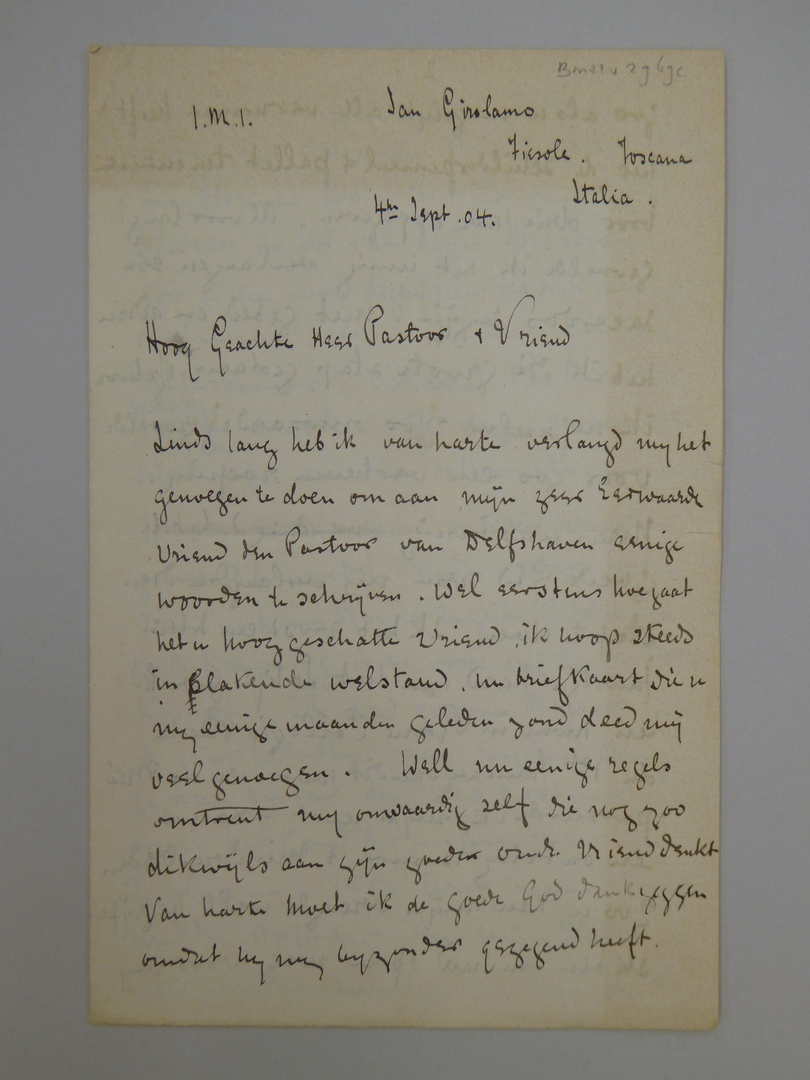 I.M.I.
San Girolamo
Fiesole. Toscana
Italia.
4th Sept. 04.
Hoog Geachte Heer Pastoor & Vriend
Sinds lang heb ik van harte verlangd my het
genoegen te doen om aan mijn zeer Eerwaarde
Vriend den Pastoor van Delfshaven eenige
woorden te schrijven. Wel eerstens hoe gaat
het u hoog geschatte Vriend, ik hoop steeds
in blakende welstand. uw briefkaart die u
my eenige maanden geleden zond deed mij
veel genoegen. Well nu eenige regels
omtrent my onwaardig zelf die nog zoo
dikwijls aan zijn goeden oude Vriend denkt
Van harte moet ik de goede God dankzeggen
omdat hy my byzonder gezegend heeft.